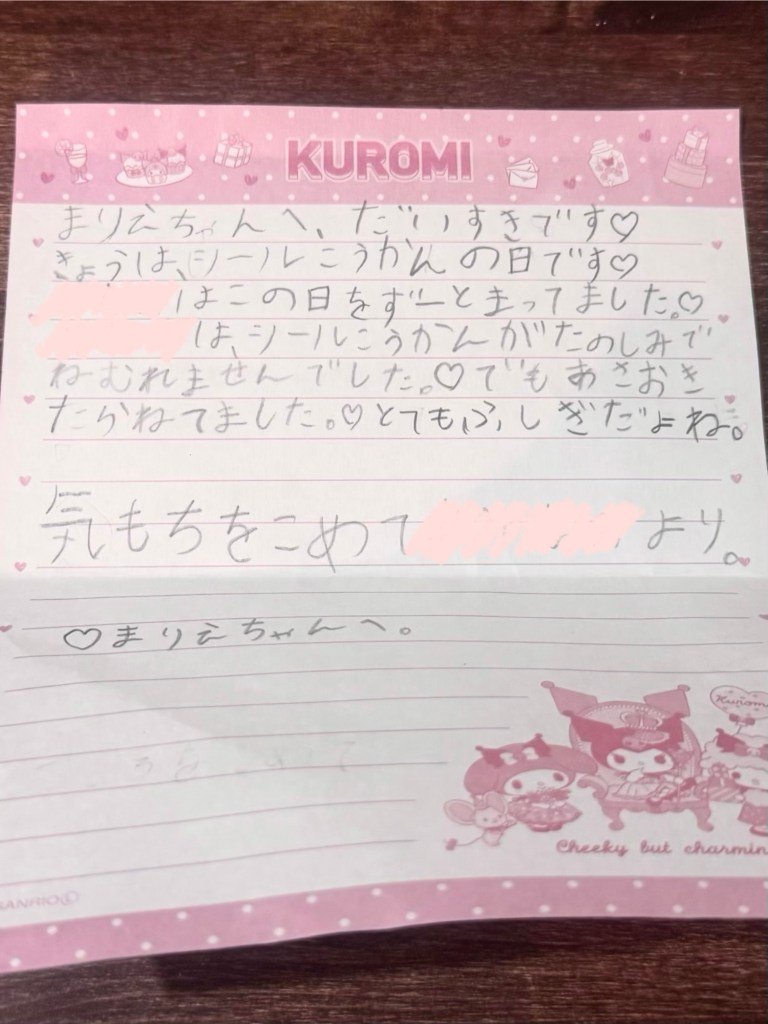 KUROMI
まりえちゃんへ、だいすきです♡
きょうは、シールこうかんの日です♡
はこの日をずーとまってました。♡
は、シールこうかんがたのしみで
ねむれませんでした。♡でもあさおき
たらねてました。♡とてもふしぎだよね。
気もちをこめて より。
♡まりえちゃんへ。
Kuromi
Cheeky but charmin
SANRIO